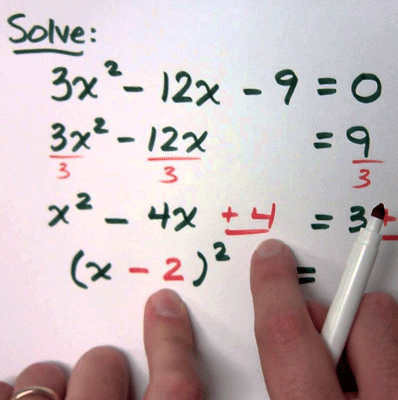 Solve:
3x² - 12x - 9 = 0
3x²/3 - 12x/3 = 9/3
x² - 4x + 4 = 3 +
(x - 2)² =